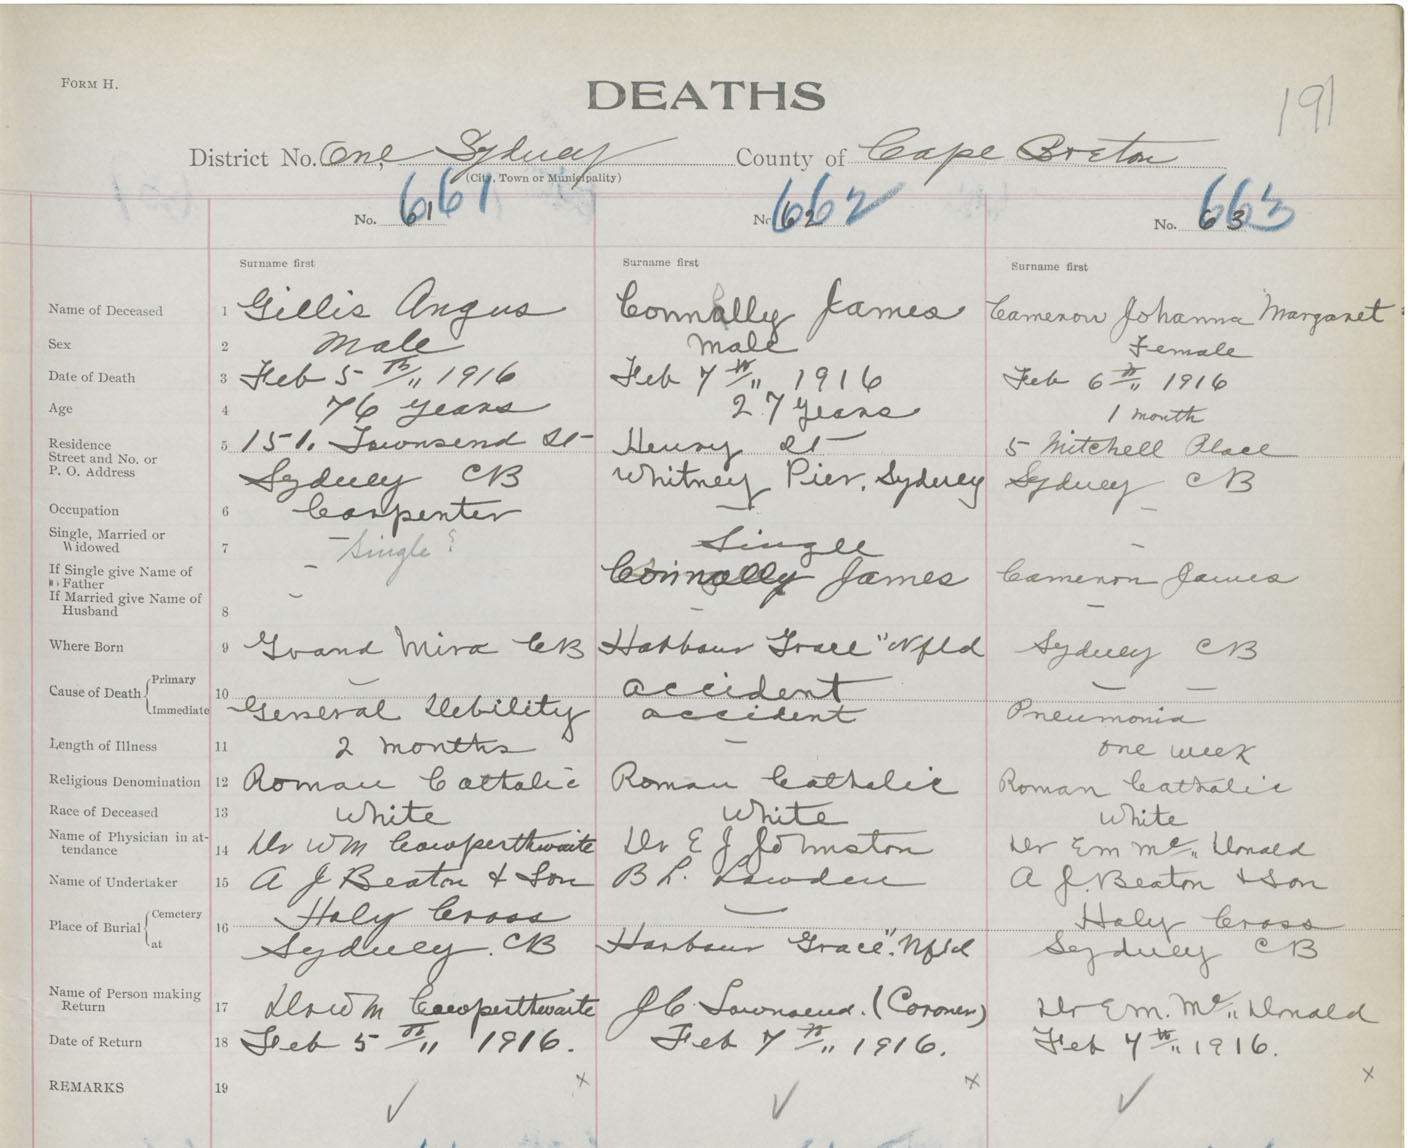 FORM H.
DEATHS
191
District No. One, Sydney County of Cape Breton
(City, Town or Municipality)
661 662 663
No. 61 No. 62 No. 63
Surname first Surname first Surname first
Name of Deceased 1 Gillis Angus Connolly James Cameron Johanna Margaret
Sex 2 Male Male Female
Date of Death 3 Feb 5th 1916 Feb 7th 1916 Feb 6th 1916
Age 4 76 years 27 years 1 month
Residence 5 151. Townsend St Henry St 5 Mitchell Place
Street and No. or
P. O. Address Sydney CB Whitney Pier, Sydney Sydney CB
Occupation 6 Carpenter — —
Single, Married or
Widowed 7 – Single? Single –
If Single give Name of
Father – Connolly James Cameron James
If Married give Name of
Husband 8 – – –
Where Born 9 Grand Mira CB Harbour Grace" Nfld Sydney CB
Cause of Death Primary 10 — accident — —
Immediate General Debility accident Pneumonia
Length of Illness 11 2 months — one week
Religious Denomination 12 Roman Catholic Roman Catholic Roman Catholic
Race of Deceased 13 White White White
Name of Physician in at-
tendance 14 Dr Wm Cowperthwaite Dr E J Johnston Dr Em Mc" Donald
Name of Undertaker 15 A J Beaton & Son B L. Lowden A J. Beaton & Son
Place of Burial Cemetery 16 Holy Cross — Holy Cross
at Sydney. CB Harbour Grace". Nfld Sydney CB
Name of Person making
Return 17 Dr Wm Cowperthwaite J C Townsend. (Coroner) Dr Em. Mc" Donald
Date of Return 18 Feb 5th 1916. Feb 7th 1916. Feb 7th 1916.
REMARKS 19 x x x
✓ ✓ ✓